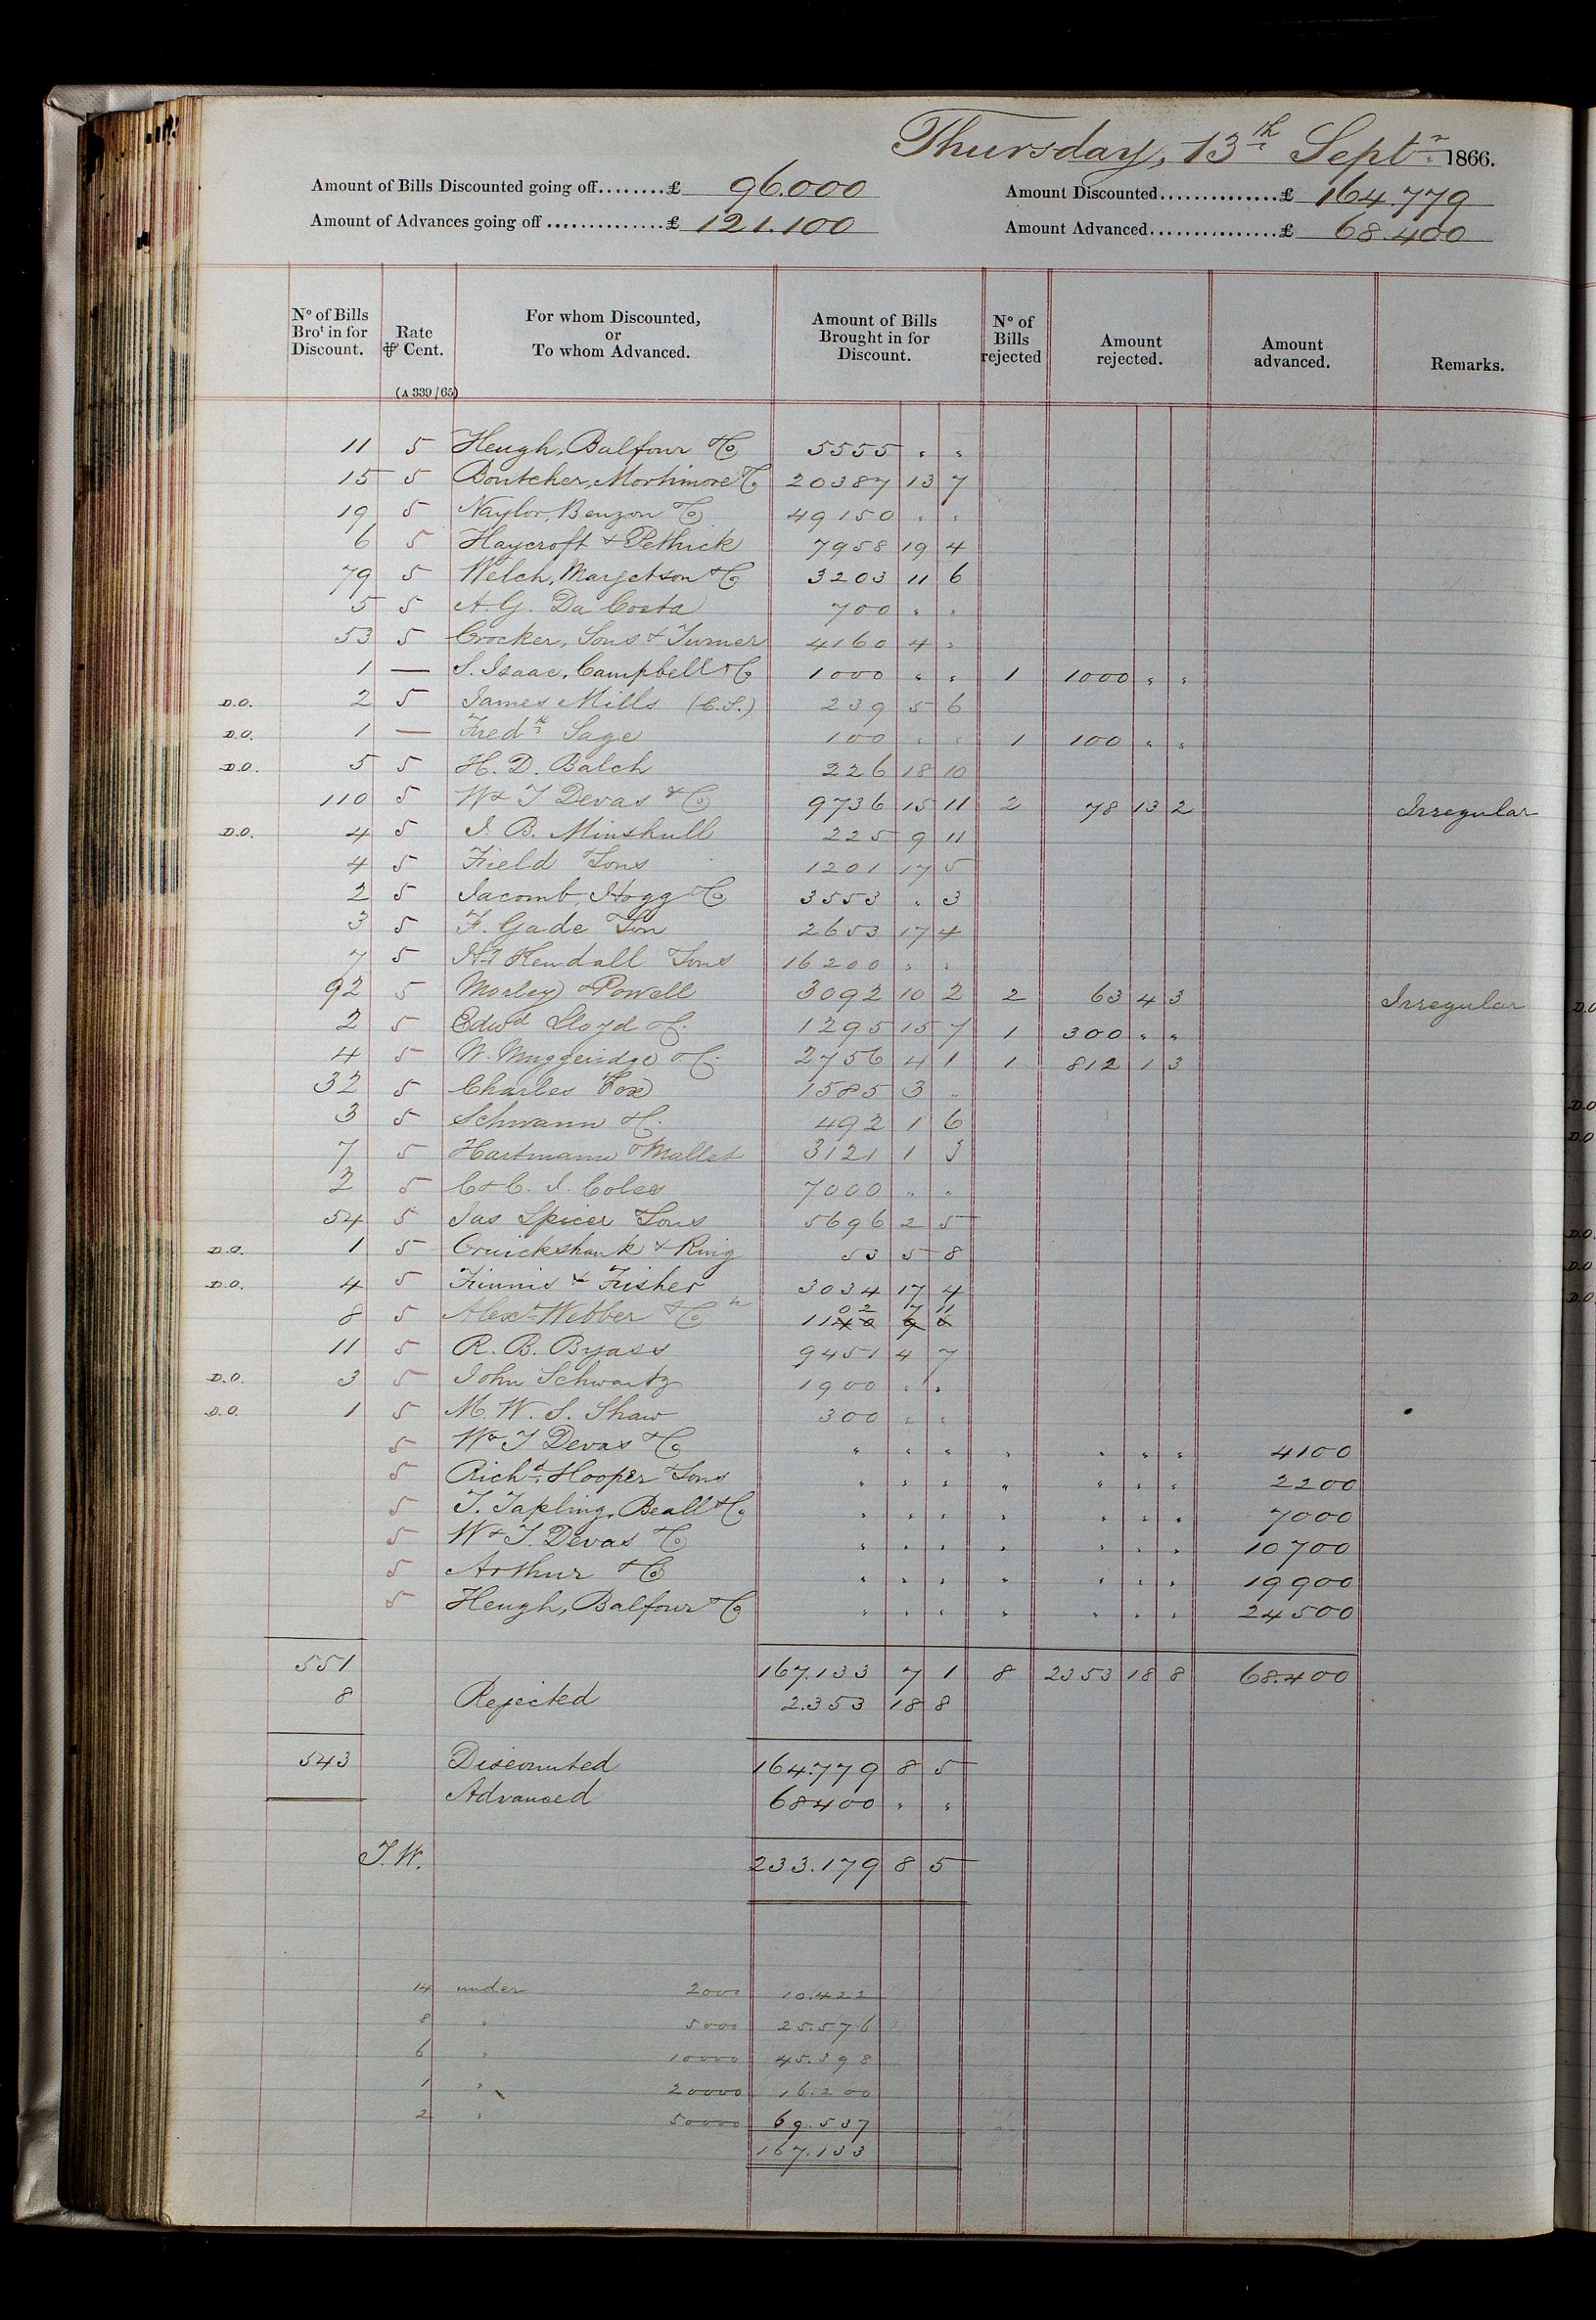 Thursday, 13th Septr 1866.
Amount of Bills Discounted going off........£ 96.000 Amount Discounted...............£ 164.779
Amount of Advances going off ...............£ 121.100 Amount Advanced................£ 68.400
No of Bills Brot in for Discount. Rate ⅌ Cent. (A 339/65) For whom Discounted, or To whom Advanced. Amount of Bills Brought in for Discount. No of Bills rejected Amount rejected. Amount advanced. Remarks.
11 5 Heugh, Balfour & Co 5555 " "
15 5 Boutcher, Mortimore & Co 20387 13 7
19 5 Naylor, Benzon & Co 49150 " "
6 5 Haycroft & Pethick 7958 19 4
79 5 Welch, Margetson & Co 3203 11 6
5 5 A. G. Da Costa 700 " "
53 5 Crocker, Sons & Turner 4160 4 "
1 — S. Isaac, Campbell & Co 1000 " " 1 1000 " "
D.O. 2 5 James Mills (C.S.) 239 5 6
D.O. 1 — Fredk Sage 100 " " 1 100 " "
D.O. 5 5 H. D. Balch 226 18 10
110 5 W & T Devas & Co 9736 15 11 2 78 13 2 Irregular
D.O. 4 5 J. B. Minshull 225 9 11
4 5 Field Sons 1201 17 5
2 5 Jacomb, Hogg & Co 3553 " 3
3 5 F. Gade Son 2653 17 4
7 5 Hy Kendall Sons 16200 " "
92 5 Morley & Powell 3092 10 2 2 63 4 3 Irregular
2 5 Edwd Lloyd & Co 1295 15 7 1 300 " "
4 5 W. Muggeridge & Co 2756 4 1 1 812 1 3
32 5 Charles Fox 1585 3 "
3 5 Schwann & Co 492 1 6
7 5 Hartmann & Mallet 3121 1 3
2 5 C & C. J. Coles 7000 " "
54 5 Jas Spicer Sons 5696 2 5
D.O. 1 5 Cruickshank & Ring 53 5 8
D.O. 4 5 Finnis & Fisher 3034 17 4
8 5 Alexr Webber & Co 1102 7 11
11 5 R. B. Byass 9451 4 7
D.O. 3 5 John Schwartz 1900 " "
D.O. 1 5 M. W. S. Shaw 300 " "
5 W & T Devas & Co " " " " " " " 4100
5 Richd Hooper Sons " " " " " " " 2200
5 T. Tapling, Beall & Co " " " " " " " 7000
5 W & T. Devas & Co " " " " " " " 10700
5 Arthur & Co " " " " " " " 19900
5 Heugh, Balfour & Co " " " " " " " 24500
551 167.133 7 1 8 2353 18 8 68.400
8 Rejected 2.353 18 8
543 Discounted 164.779 8 5
Advanced 68400 " "
T.W. 233.179 8 5
14 under 2000 10.422
8 " 5000 25.576
6 " 10000 45.398
1 " 20000 16.200
2 " 50000 69.537
167.133